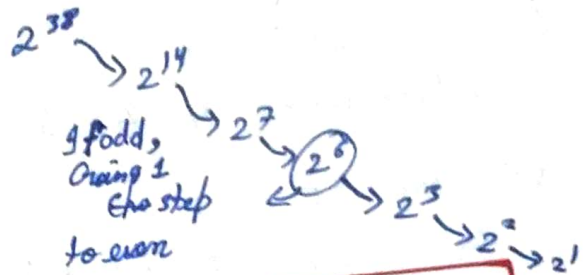 2^38
2^14
2^7
2^6
2^3
2^2
2^1
If odd,
1
step
to even